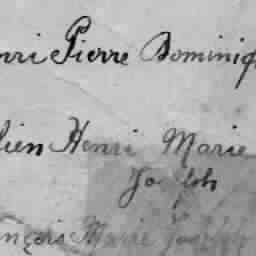 nri Pierre Dominiq
lien Henri Marie
Joseph
nçois Marie Joseph